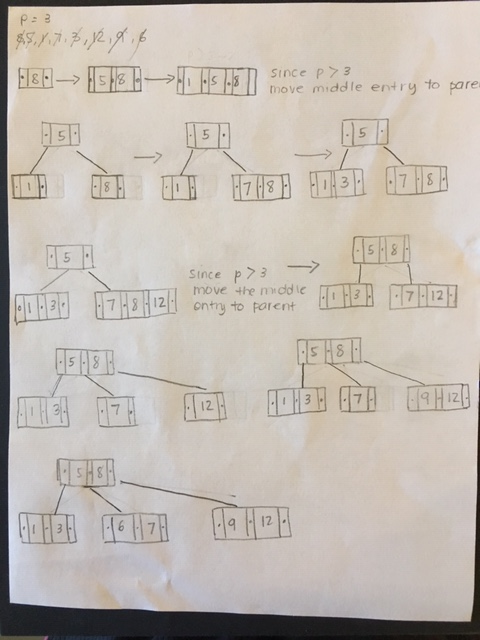 p = 3
8, 5, 1, 7, 3, 12, 9, 6
8 → 5 8 → 1 5 8 since p > 3
move middle entry to pare
5 → 5 → 5
1 8 1 7 8 1 3 7 8
5 → 5 8
1 3 7 8 12 since p > 3 1 3 7 12
move the middle
entry to parent
5 8 5 8
1 3 7 12 1 3 7 9 12
5 8
1 3 6 7 9 12